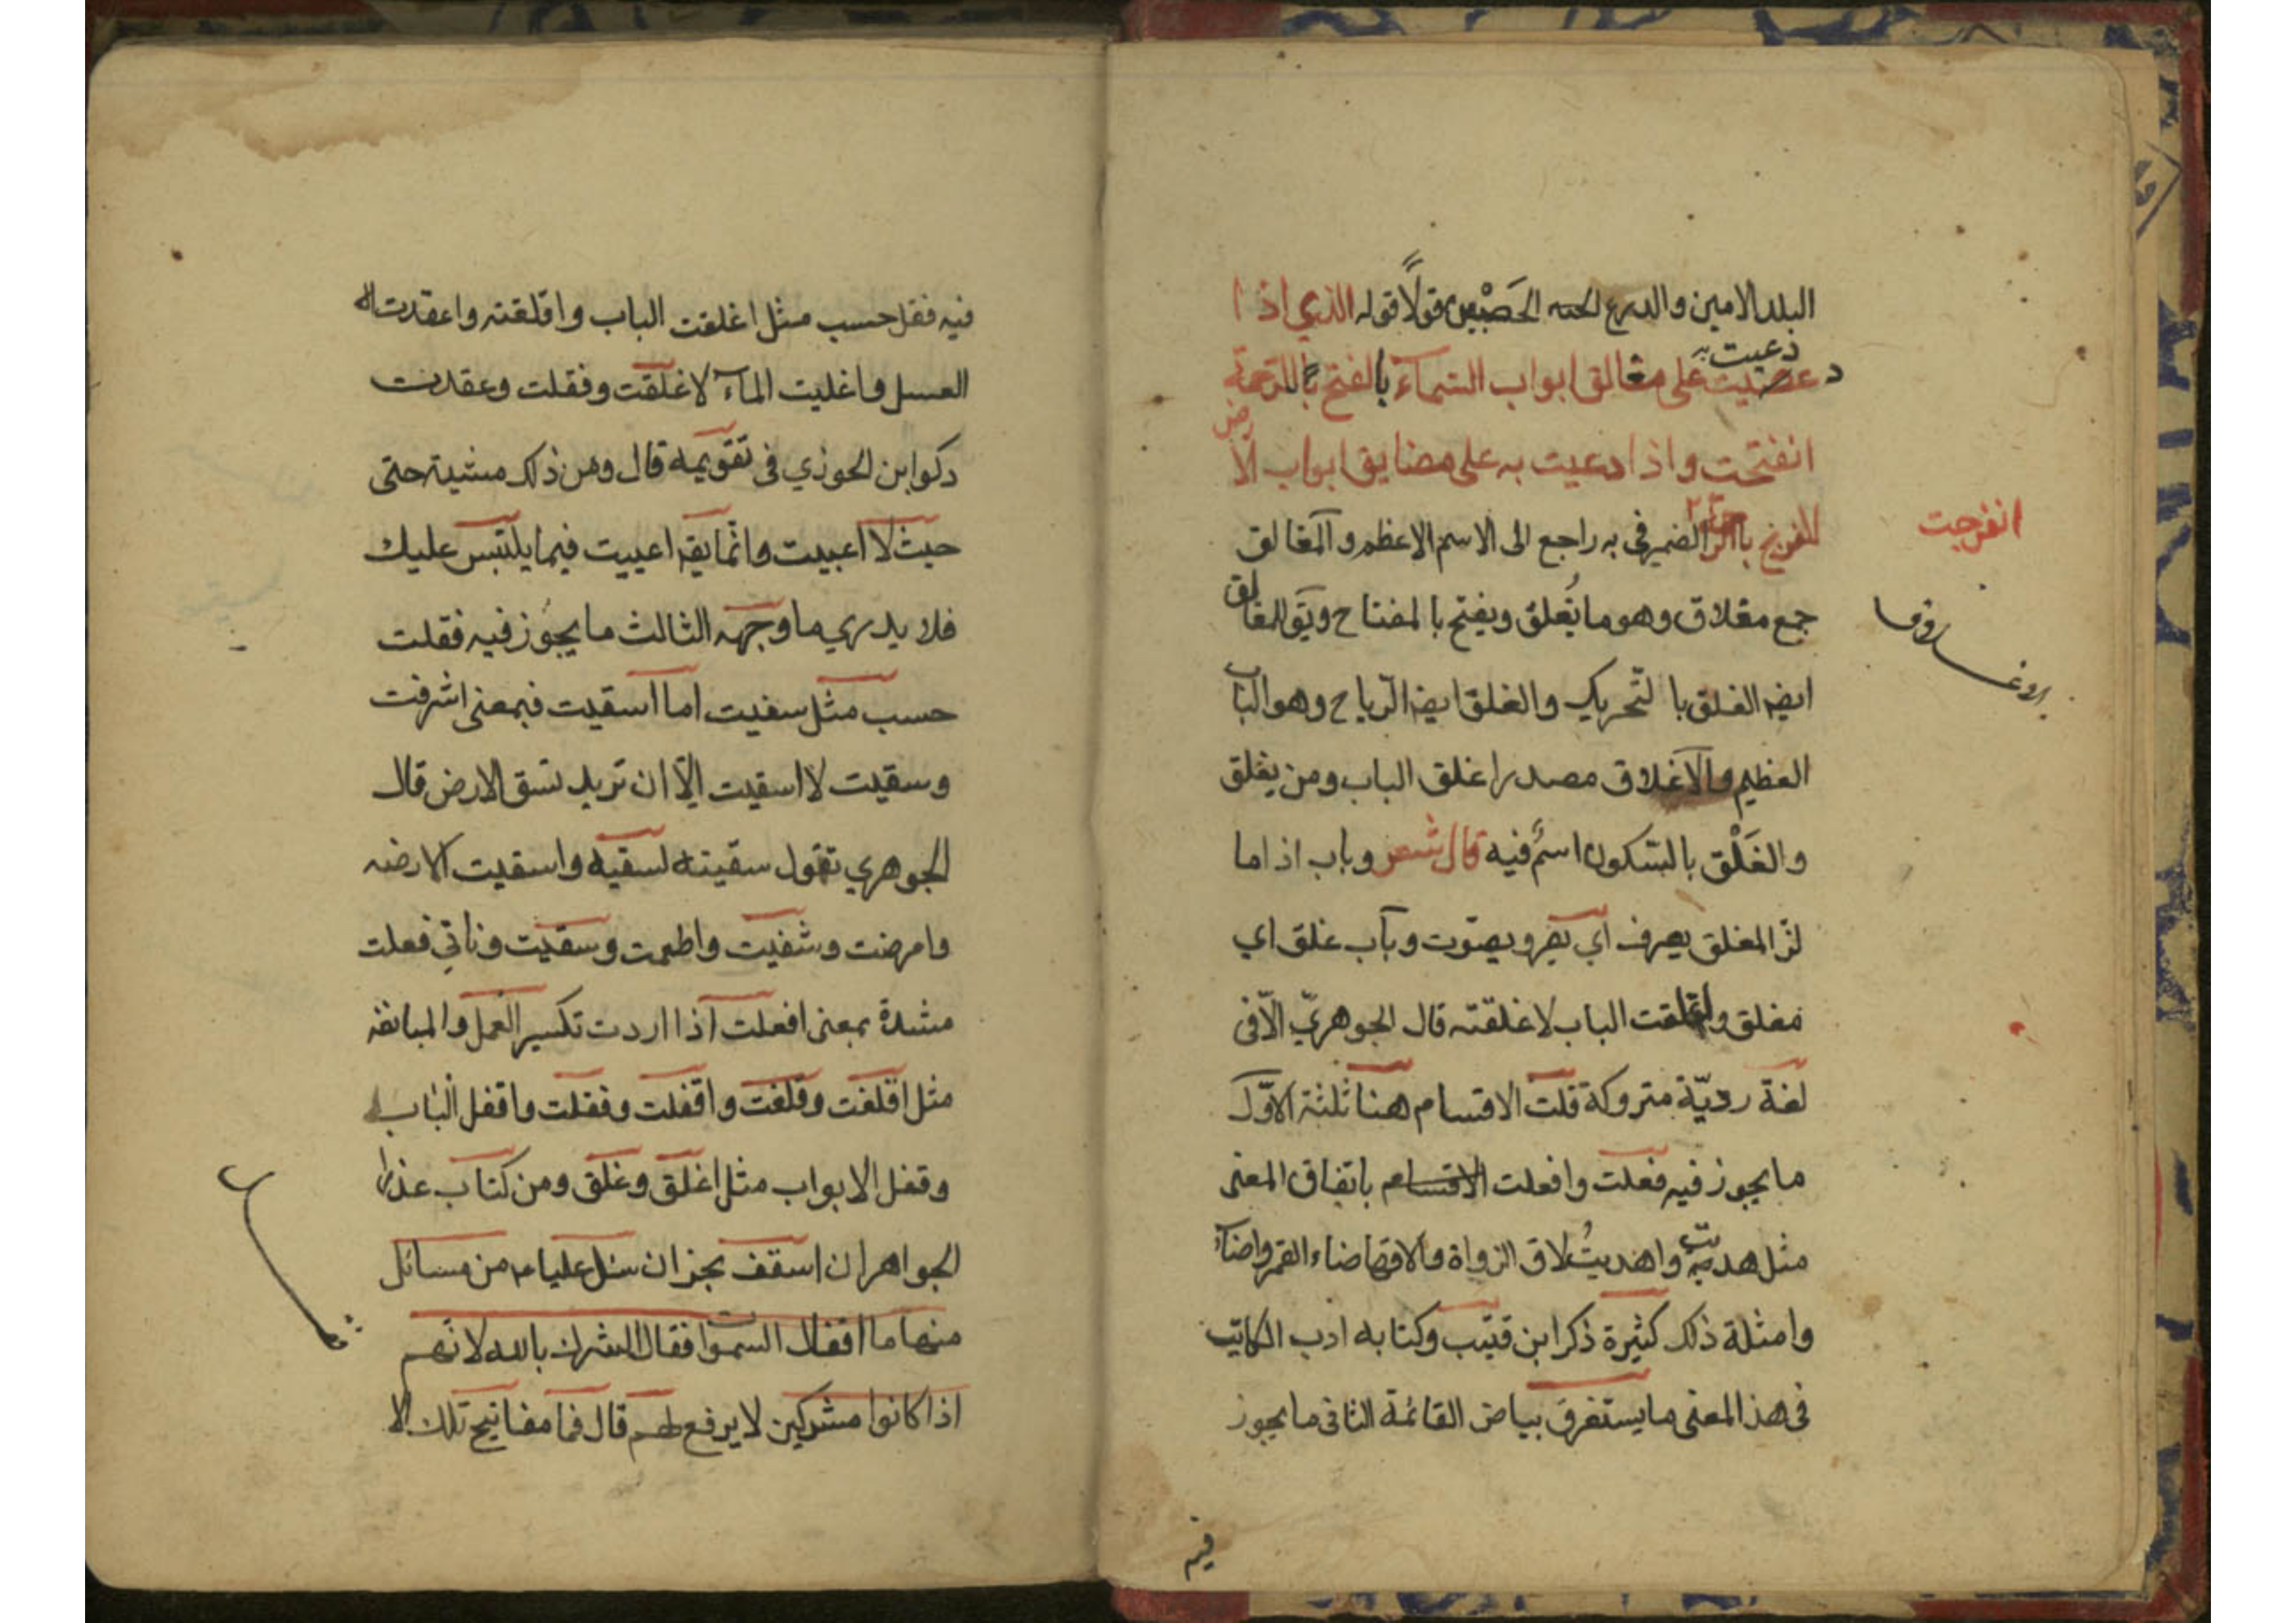 البلد الامين والدرع الحصين قولا قوله الذي اذا
دعيت به
على مغالق ابواب السماء بالفتح بالرحمة
انفتحت واذا دعيت به على مضايق ابواب الارض
للفرج الضمير في به راجع الى الاسم الاعظم والمغالق
انفرجت
جمع مغلاق وهو ما يُغلق ويفتح بالمفتاح ويق للمغالق
ايضه الغلق بالتّحريك والغلق ايضه الرّياح وهو الباب
العظيم والاغلاق مصدر اغلق الباب ومن يغلق
والغَلْق بالسّكون اسمٌ فيه قال شعر وباب اذا ما
لزّ المغلق يصرف اي يصر ويصوّت وبآب غلق اي
مغلق واغلقت الباب لا غلقته قال الجوهريّ الّا في
لغة رديّة متروكة قلت الاقسام هنا ثلثة الاوّل
ما يجوز فيه فعلت وافعلت الاقسام باتفاق المعنى
مثل هديت واهديتُ ضاء القمر واضاء
وامثلة ذلك كثيرة ذكر ابن قتيب وكتابه ادب الكاتب
في هذ المعنى ما يستغرق بياض القائمة الثاني ما يجوز
فيه
فيه فقل حسب مثل اغلقت الباب واقلقته واعقدت
العسل واغليت المآء لا غلقت وفقلت وعقدت
دكوا بن الحوزي في تقويمه قال ومن ذلك مشيت حتى
حيث لا اعييت وانّما يقه اعييت فيما يلتبس عليك
فلا يدري ما وجهه الثالث ما يجوز فيه فقلت
حسب مثل سفيت اما اسقيت فبمعنى اشرفت
وسقيت لا اسقيت الّا ان تريد تسق الارض قال
الجوهري تقول سقيته لسقيه واسقيت لارضه
وامرضت وشفيت واطمت وسقيت وناتي فعلت
مشدة بمعنى افعلت اذا اردت تكسير العمل والمبالغه
مثل اقلفت وقلفت واقفلت وفقلت واقفل الباب
وقفل الابواب مثل اغلق وغلق ومن كتاب
الجواهر ان اسقف بجزان سئل عليا من مسائل
منها ما اقفال السموات فقال الشرك بالله لانهم
اذا كانوا مشركين لا يرفع لهم قال فما مفاتيح تلك الا